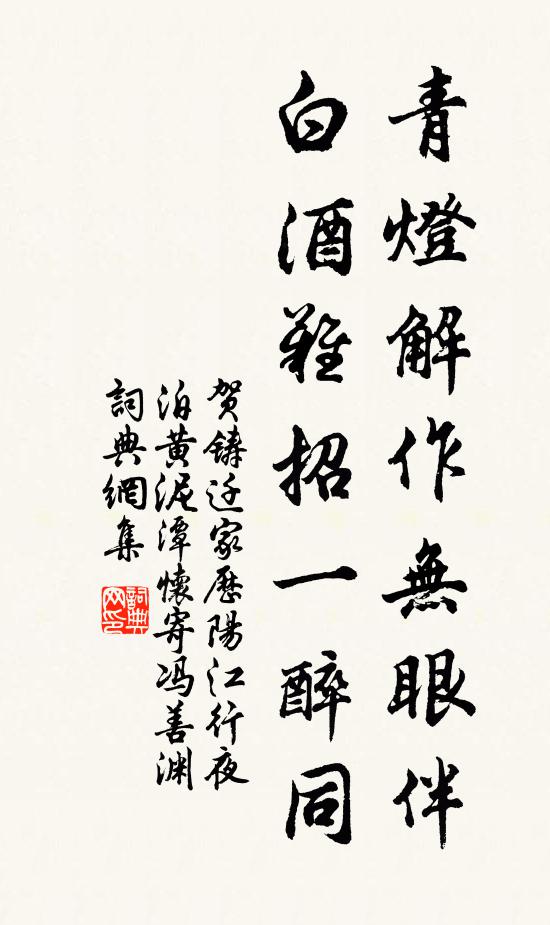 青燈解作無眼伴
白酒難招一醉同
贺鑄迁家歷陽江行夜
泊黄泥潭懷寄冯善渊
詞典網集
詞典网印